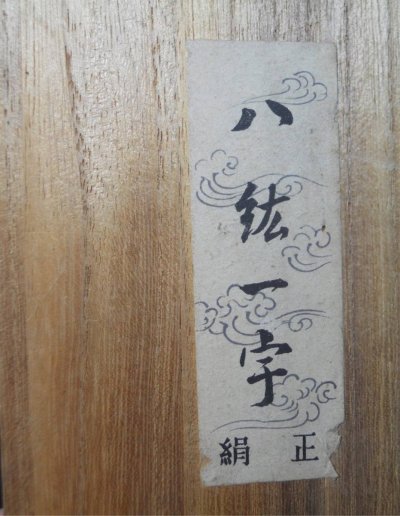 八紘一宇
正絹